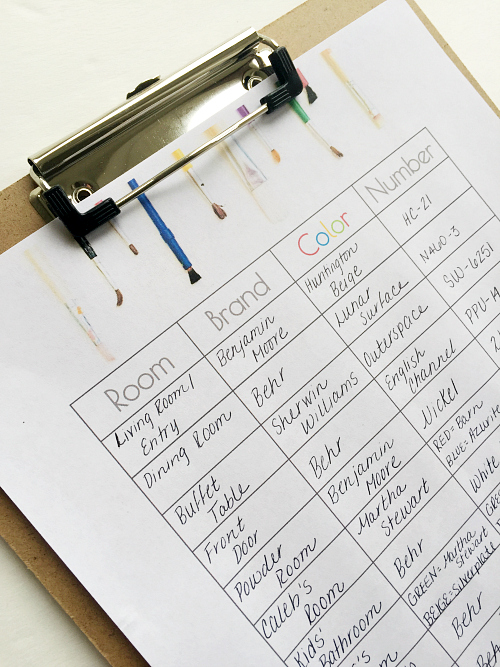 Room Brand Color Number
Living Room /
Entry
Benjamin
Moore
Huntington
Beige
HC-21
Dining Room
Behr
Lunar
Surface
N460-3
Buffet
Table
Sherwin
Williams
Outerspace
SW-6251
Front
Door
Behr
English
Channel
PPU-14
Powder
Room
Benjamin
Moore
Nickel
2
Caleb's
Room
Martha
Stewart
RED= Barn
BLUE=
Kids'
Bathroom
Behr
White
GREEN= Martha
Stewart
BEIGE=
Behr